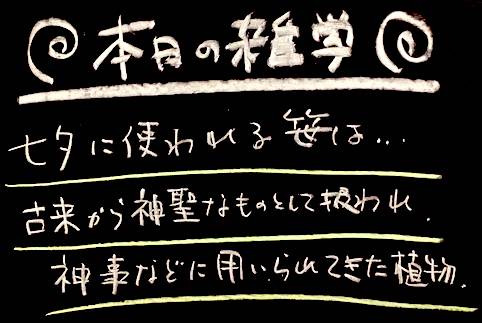 本日の雑学
七夕に使われる笹は...
古来から神聖なものとして扱われ.
神事などに用いられてきた植物.